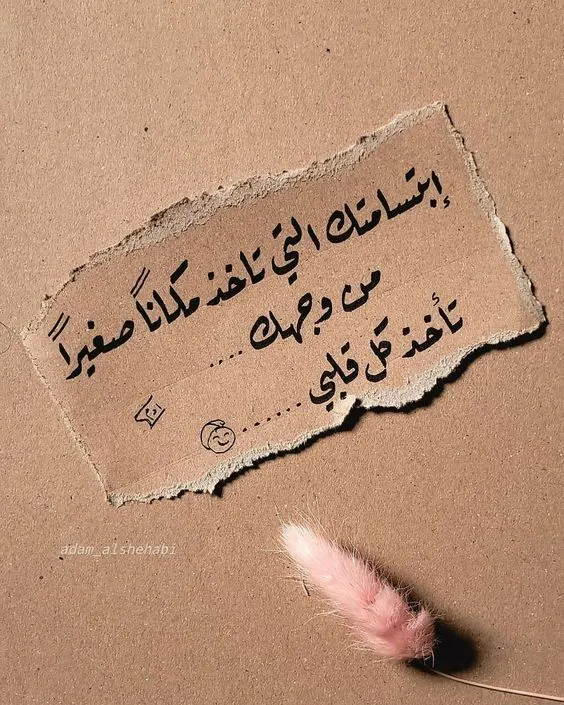 إبتسامتك التي تاخذ مكاناً صغيراً
من وجهك ....
تأخذ كل قلبي ......
adam_alshehabi